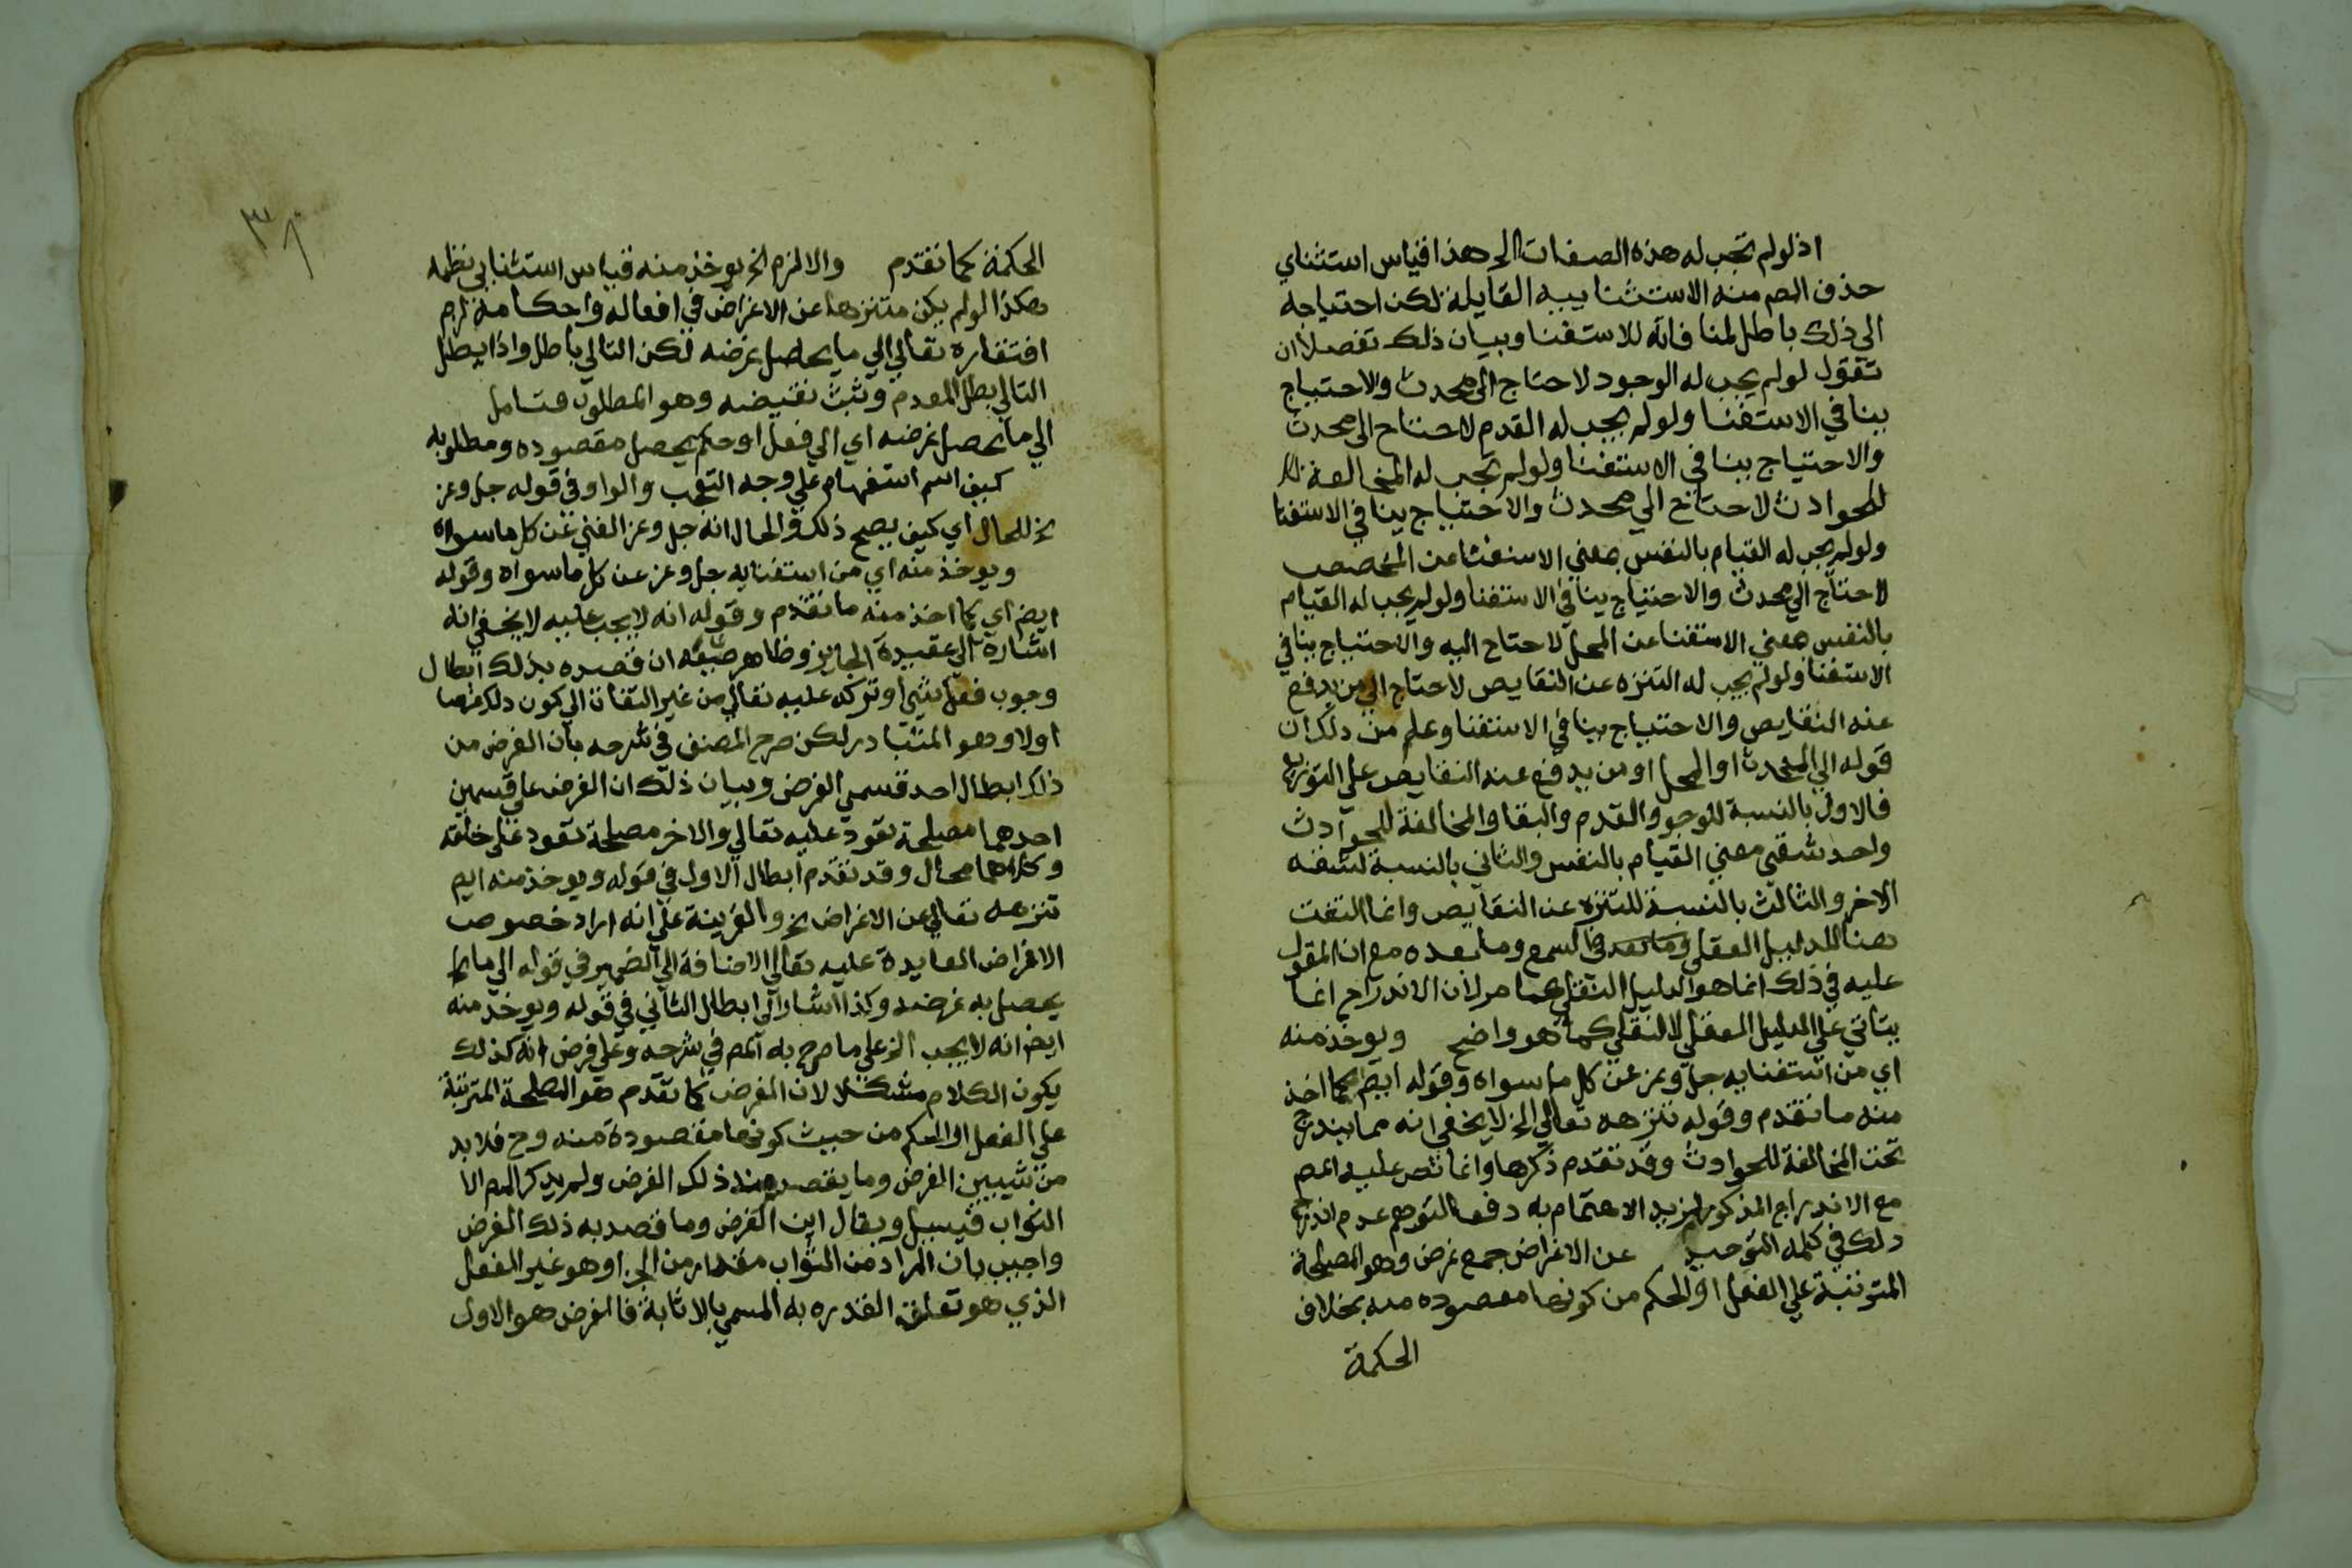 اذ لولم تجب له هذه الصفات الى هذا قياس استثناي
حذف المصم منه الاستثناييه القايلة لكن احتياجه
الى ذلك باطل لمنافاته للاستغنا وبيان ذلك تفصيلا ان
تقول لولم يجب له الوجود لاحتاج الى محدث والاحتياج
ينافي الاستغنا ولولم يجب له القدم لاحتاج الى محدث
والاحتياج ينافي الاستغنا ولولم تجب له المخالفة
للحوادث لاحتاج الي محدث والاحتياج ينافي الاستغنا
ولولم يجب له القيام بالنفس بمعني الاستغنا عن المخصص
لاحتاج الي محدث والاحتياج ينافي الاستغنا ولولم يجب له القيام
بالنفس بمعني الاستغنا عن المحل لاحتاج اليه والاحتياج ينافي
الاستغنا ولولم يجب له التنزه عن النقايص لاحتاج الي من يدفع
عنه النقايص والاحتياج ينافي الاستغنا وعلم من ذلك ان
قوله الي المحدث او المحل او من يدفع عنه النقايص علي التوزيع
فالاول بالنسبة للوجود والقدم والبقا والمخالفة للحوادث
واحد شقي معني القيام بالنفس والثاني بالنسبة لشقه
الاخر والثالث بالنسبة للتنزه عن النقايص وانما التفت
هنا للدليل العقلي في السمع وما بعده مع ان المقول
عليه في ذلك انما هو الدليل النقلي كما مر لان الاندراج انما
يتاتي علي الدليل العقلي لا النقلي كما هو واضح ويوخذ منه
اي من استغنايه جل وعز عن كل ما سواه وقوله ايضم كما اخذ
منه ما تقدم وقوله تنزهه تعالي الخ لا يخفي انه مما يندرج
تحت المخالفة للحوادث وقد تقدم ذكرها وانما نص عليه المصم
مع الاندراج المذكور لمزيد الاهتمام به دفعا لتوهم عدم اندراج
ذلك في كلمه التوحيد عن الاغراض جمع غرض وهو المصلحة
المترتبة علي الفعل او الحكم من كونها مقصوده منه بخلاف
الحكمة
٣٨
الحكمة كما تقدم والا لزم الخ يوخذ منه قياس استثنايي نظمه
هكذا لولم يكن متنزها عن الاغراض في افعاله واحكامه لزم
افتقاره تعالي الي ما يحصل غرضه لكن التالي باطل واذا بطل
التالي بطل المقدم وثبت نقيضه وهو المطلوب فتامل
الي ما يحصل غرضه اي الي فعل او حكم يحصل مقصوده ومطلوبه
كيف اسم استفهام علي وجه التعجب والواو في قوله جل وعز
الخ للحال اي كيف يصح ذلك والحال انه جل وعز الغني عن كل ما سواه
ويوخذ منه اي من استغنايه جل وعز عن كل ما سواه وقوله
ايضم اي كما اخذ منه ما تقدم وقوله انه لا يجب عليه لا يخفي انه
اشارة الى عقيدة الجايز وظاهر صنيعه ان قصده بذلك ابطال
وجوب فعل شي او تركه عليه تعالي من غير التفات الي كون ذلك غرضا
اولا وهو المتبادر لكن صرح المصنف في شرحه بان الغرض من
ذلك ابطال احد قسمي الغرض وبيان ذلك ان الغرض علي قسمين
احدهما مصلحة تعود عليه تعالي والاخر مصلحة تعود علي خلقه
وكلاهما محال وقد تقدم ابطال الاول في قوله ويوخذ منه ايضم
تنزهه تعالي عن الاغراض الخ والقرينة علي انه اراد خصوص
الاغراض العايدة عليه تعالي الاضافة الي الضمير في قوله الي ما
يحصل به غرضه وكذا اشار الى ابطال الثاني في قوله ويوخذ منه
ايضم انه لا يجب الخ علي ما صرح به المصم في شرحه وعلي فرض انه كذلك
يكون الكلام مشكلا لان الغرض كما تقدم هو المصلحة المترتبة
علي الفعل او الحكم من حيث كونها مقصودة منه وح فلا بد
من شيبين الغرض وما يقصد منه ذلك الغرض ولم يذكر المصم الا
الثواب فيسيل ويقال اين الغرض وما قصد به ذلك الغرض
واجيب بان المراد من الثواب مقدار من الجزا وهو غير الفعل
الذي هو تعلق القدره به المسمي بالاثابة فالغرض هو الاول